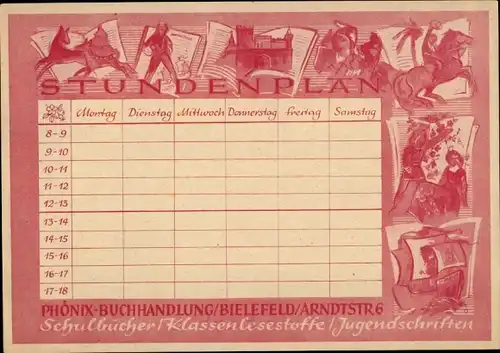 STUNDENPLAN
Montag Dienstag Mittwoch Donnerstag Freitag Samstag
8-9
9-10
10-11
11-12
12-13
13-14
14-15
15-16
16-17
17-18
PHÖNIX-BUCHHANDLUNG/BIELEFELD/ARNDTSTR6
Schulbücher/Klassenlesestoffe/Jugendschriften